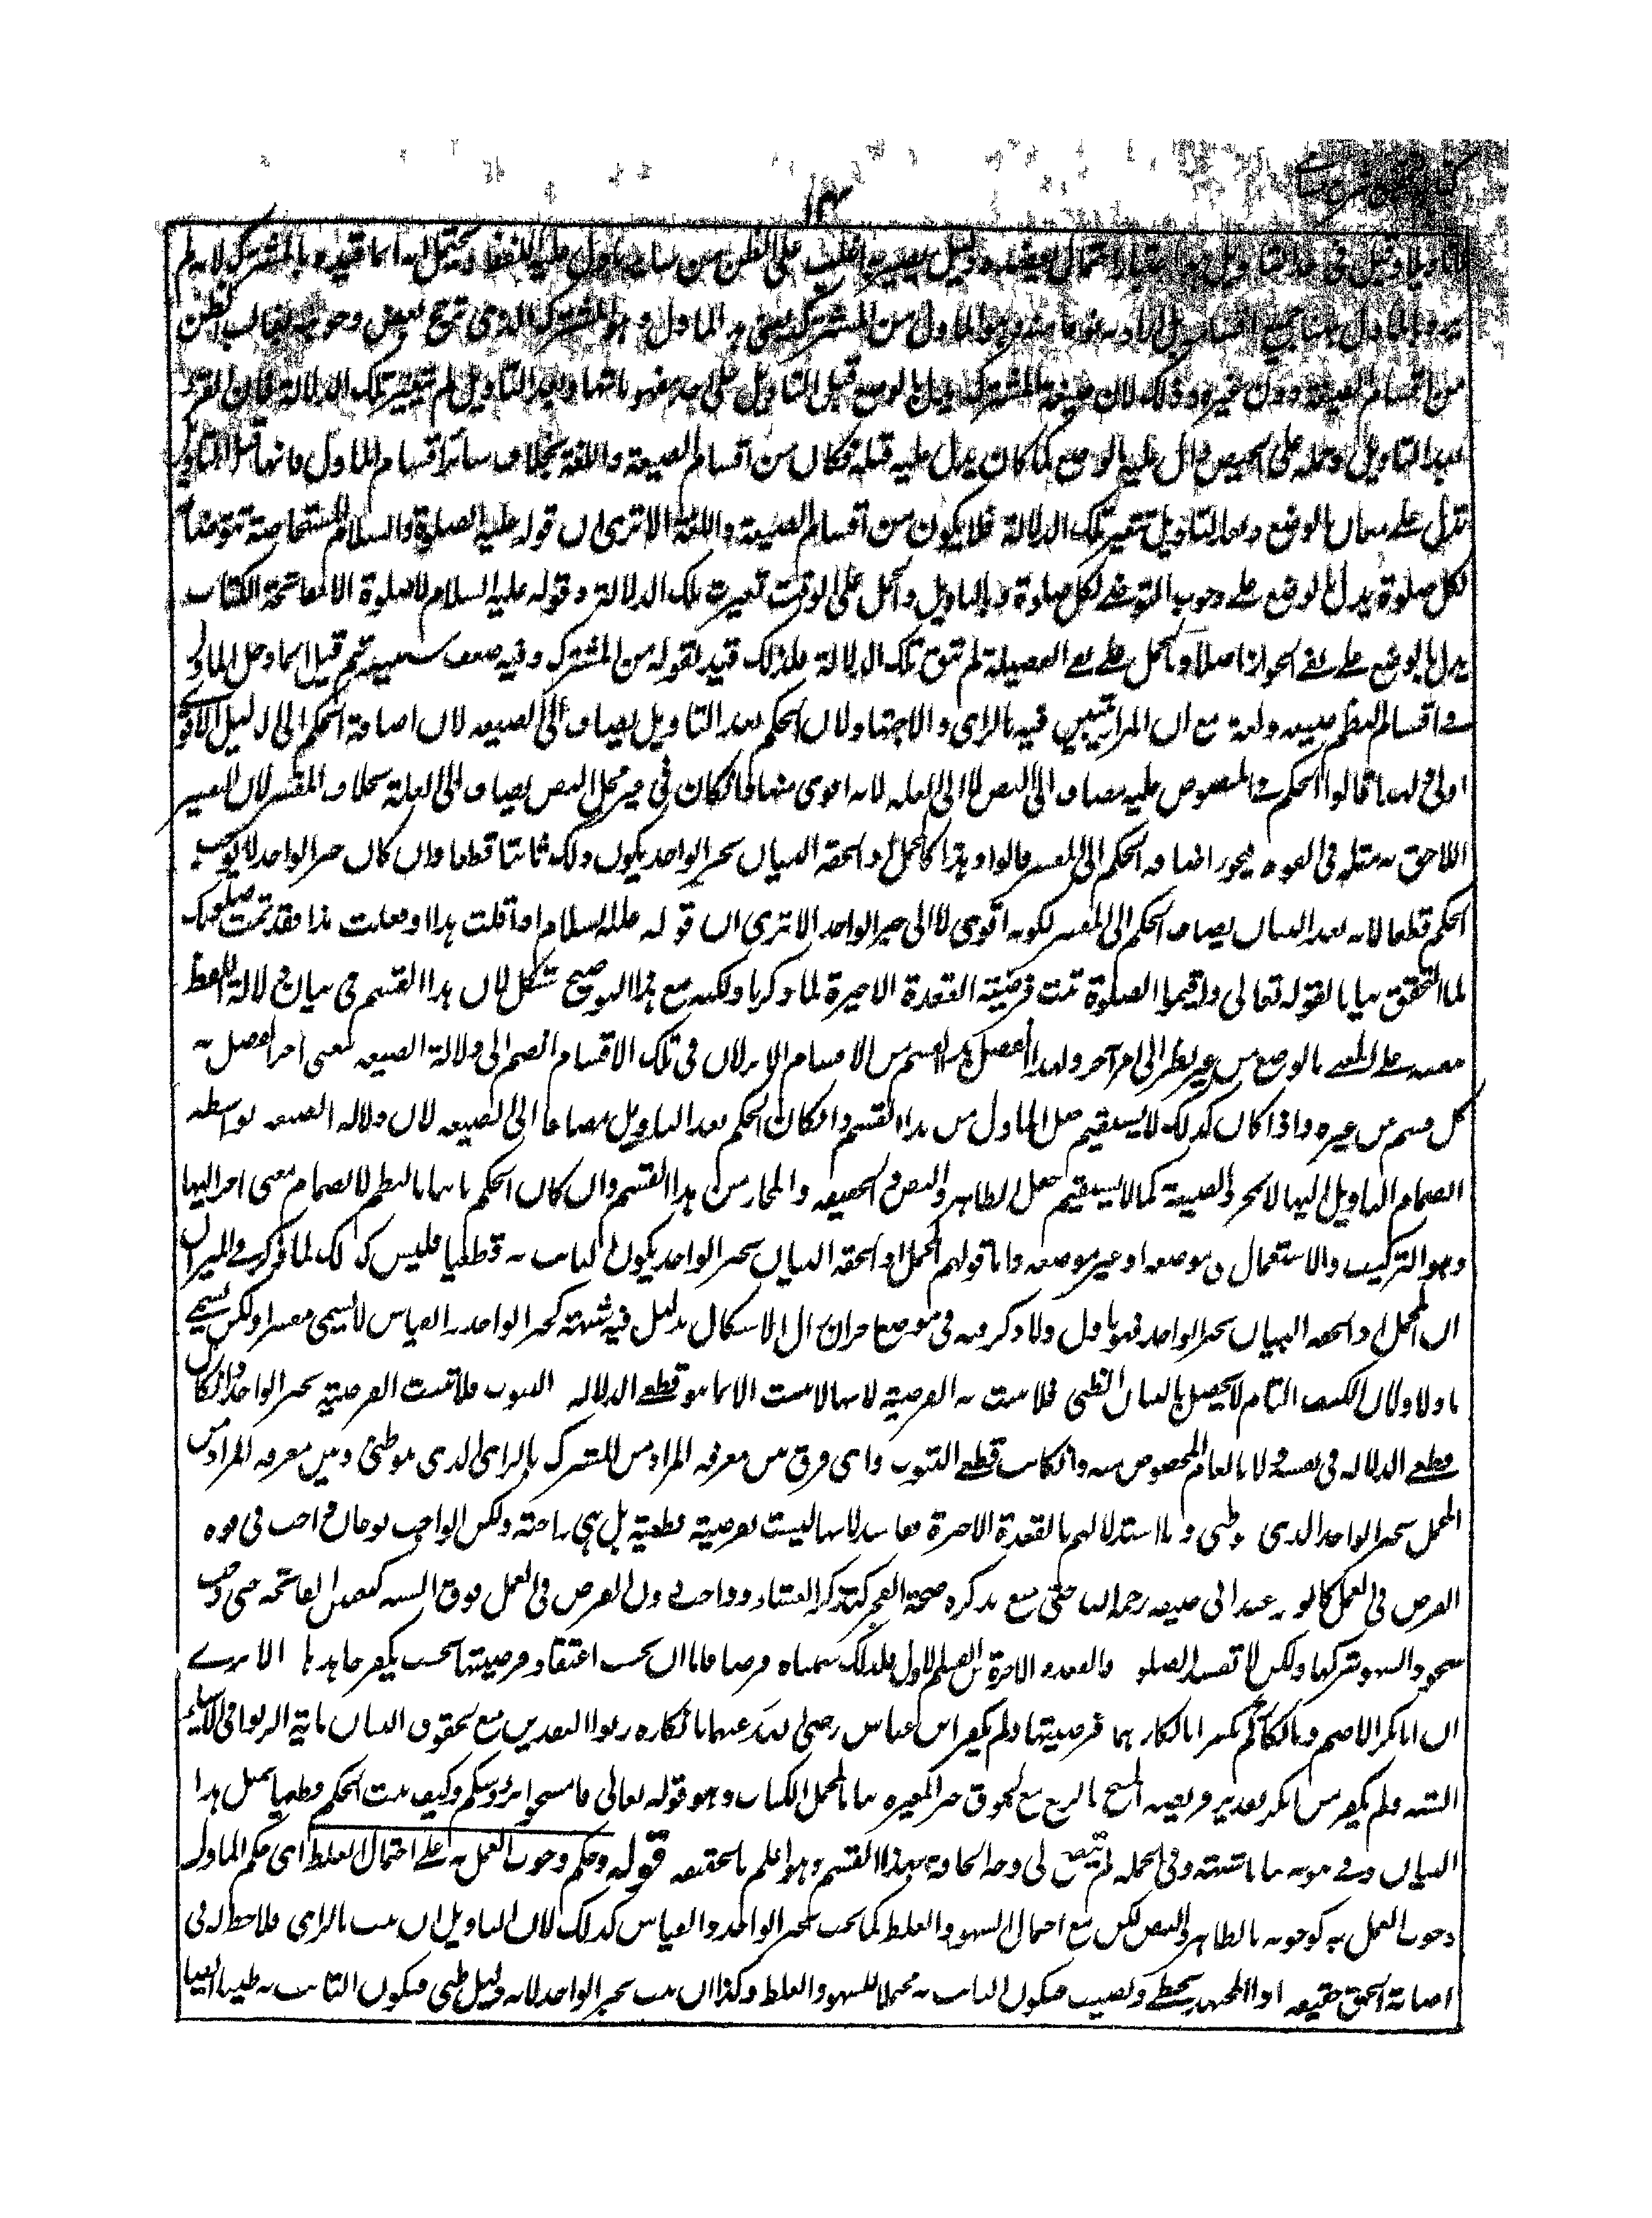 ١٣
تاويلا وقيل في حد التاويل هو اعتبار احتمال يعضده دليل يصير به اغلب على الظن من المعنى الذي دل عليه اللفظ ويحتمل انه انما قيده بالمشترك لانه لم
يرد بالماول ههنا جميع اقسامه بل اراد به نوعا منه وهو الماول من المشترك يعني هذا الماول وهو المشترك الذي ترجح بعض وجوهه بغالب الظن
من اقسام الصيغة دون غيره وذلك لان صيغة المشترك دال بالوضع قبل التاويل على احد مفهوماتها وبعد التاويل لم تتغير تلك الدلالة فان القرء
بعد التاويل وحمله على الحيض دال عليه بالوضع كما كان يدل عليه قبله فكان من اقسام الصيغة واللغة بخلاف سائر اقسام الماول فانها قبل التاويل
تدل على معان بالوضع وبعد التاويل تتغير تلك الدلالة فلا يكون من اقسام الصيغة واللغة الا ترى ان قوله عليه الصلوة والسلام المستحاضة تتوضأ
لكل صلوة يدل بالوضع على وجوب التوضي لكل صلوة وبالتاويل والحمل على الوقت تغيرت تلك الدلالة وقوله عليه السلام لا صلوة الا بفاتحة الكتاب
يدل بالوضع على نفي الجواز اصلا وبالحمل على نفي الفضيلة لم تبق تلك الدلالة فلذلك قيد بقوله من المشترك وفيه ضعف ستعرفه ثم قيل انما دخل الماول
في اقسام النظم صيغة ولغة مع ان المراد يتبين فيه بالراي والاجتهاد لان الحكم بعد التاويل يضاف الى الصيغة لان اضافة الحكم الى الدليل الاقوى
اولى ولهذا قالوا الحكم في المنصوص عليه مضاف الى النص لا الى العلة لانه اقوى منها وان كان في غير محل النص يضاف الى العلة بخلاف المفسر لان التفسير
اللاحق به مثله في القوة فيجوز اضافة الحكم الى المفسر قالوا وهذا كالمجمل اذا لحقه البيان بخبر الواحد يكون ذلك ثابتا قطعا وان كان خبر الواحد لا يوجب
الحكم قطعا لانه بعد البيان يضاف الحكم الى المفسر لكونه اقوى لا الى خبر الواحد الا ترى ان قوله عليه السلام اذا قلت هذا او فعلت هذا فقد تمت صلوتك
لما التحق بيانا لقوله تعالى واقيموا الصلوة ثبت فرضية القعدة الاخيرة لما ذكرنا ولكنه مع هذا التوضيح مشكل لان هذا القسم في بيان دلالة اللفظ
بنفسه على المعنى بالوضع من غير نظر الى امر آخر ولهذا انفصل هذا القسم من الاقسام الاخر لان في تلك الاقسام انضم الى دلالة الصيغة معنى آخر انفصل به
كل قسم من غيره واذا كان كذلك لا يستقيم جعل الماول من هذا القسم وان كان الحكم بعد التاويل مضافا الى الصيغة لان دلالة الصيغة بواسطة
انضمام التاويل اليها لا بمجرد الصيغة كما لا يستقيم جعل الظاهر والنص والحقيقة والمجاز من هذا القسم وان كان الحكم ثابتا بالنظم لانضمام معنى آخر اليها
وهو التركيب والاستعمال في موضعه او غير موضعه واما قولهم المجمل اذا لحقه البيان بخبر الواحد يكون الثابت به قطعيا فليس كذلك لما ذكر في الميزان
ان المجمل اذا لحقه البيان بخبر الواحد فهو ماول ولما ذكر فيه في موضع آخر ان زال الاشكال بدليل فيه شبهة كخبر الواحد والقياس لا يسمى مفسرا ولكن يسمى
ماولا ولان الكشف التام لا يحصل بالبيان الظني فلا يثبت به الفرضية لانها لا تثبت الا بما هو قطعي الدلالة والثبوت فلا تثبت الفرضية بخبر الواحد وان كان
قطعي الدلالة في نفسه ولا بالعام المخصوص منه وان كان قطعي الثبوت واي فرق بين معرفة المراد من المشترك بالراي الذي هو ظني وبين معرفة المراد من
المجمل بخبر الواحد الذي هو ظني واما استدلالهم بالقعدة الاخيرة ففاسد لانها ليست بفرضية قطعية بل هي واجبة ولكن الواجب نوعان واجب في قوة
الفرض في العمل كالوتر عند ابي حنيفة رحمه الله حتى منع تذكره صحة الفجر كتذكر العشاء وواجب دون الفرض في العمل فوق السنة كتعيين الفاتحة حتى وجب
سجود السهو بتركها ولكن لا تفسد الصلوة والقعدة الاخيرة من القسم الاول فلذلك سميناه فرضا فاما ان يجب اعتقاد فرضيتها بحيث يكفر جاحدها الا ترى
ان ابا بكر الاصم ومالكا لم يكفرا بانكارهما فرضيتها ولم يكفر ابن عباس رضي الله عنهما بانكاره ربوا النقدين مع لحوق البيان باية الربوا في الاشياء
الستة ولم يكفر من انكر تقدير فريضة المسح بالربع مع لحوق خبر المغيرة بيانا لمجمل الكتاب وهو قوله تعالى فامسحوا برؤسكم وكيف يثبت الحكم قطعيا بمثل هذا
البيان وفي ثبوته بيانا شبهة وفي الجملة لم يتضح لي وجه الحاقه بهذا القسم وهو اعلم بالحقيقة قوله وحكمه وجوب العمل به على احتمال الغلط اي حكم الماول
وجوب العمل به كوجوبه بالظاهر والنص لكن مع احتمال السهو والغلط كما يجب بخبر الواحد والقياس كذلك لان التاويل ان ثبت بالراي فلا حظ له في
اصابة الحق حقيقة اذ المجتهد يخطئ ويصيب فيكون الثابت به محتملا للسهو والغلط وكذا ان ثبت بخبر الواحد لانه دليل ظني فيكون الثابت به ظنيا ايضا